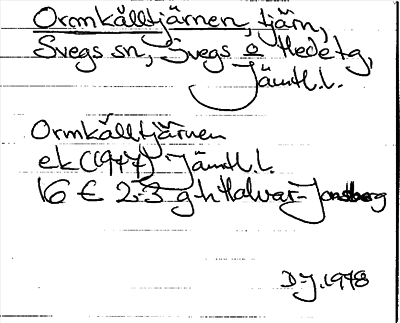 Ormkälltjärnen, tjärn,
Svegs sn, Svegs o Hede tg,
Jämtl.l.
Ormkälltjärnen
ek (1947) Jämtl.l.
16 E 2-3 g-h Halvar-Jonsberg
D-J. 1978